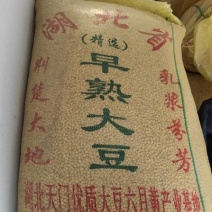 湖北省
(精选)
早熟大豆
荆楚大地
乳浆芬芳
湖北天门优质大豆六月黄产业基地